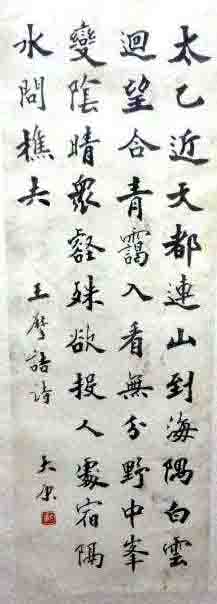 太乙近天都連山到海隅白雲
迴望合青靄入看無分野中峯
變陰晴衆壑殊欲投人處宿隔
水問樵夫
王摩詰詩
大康